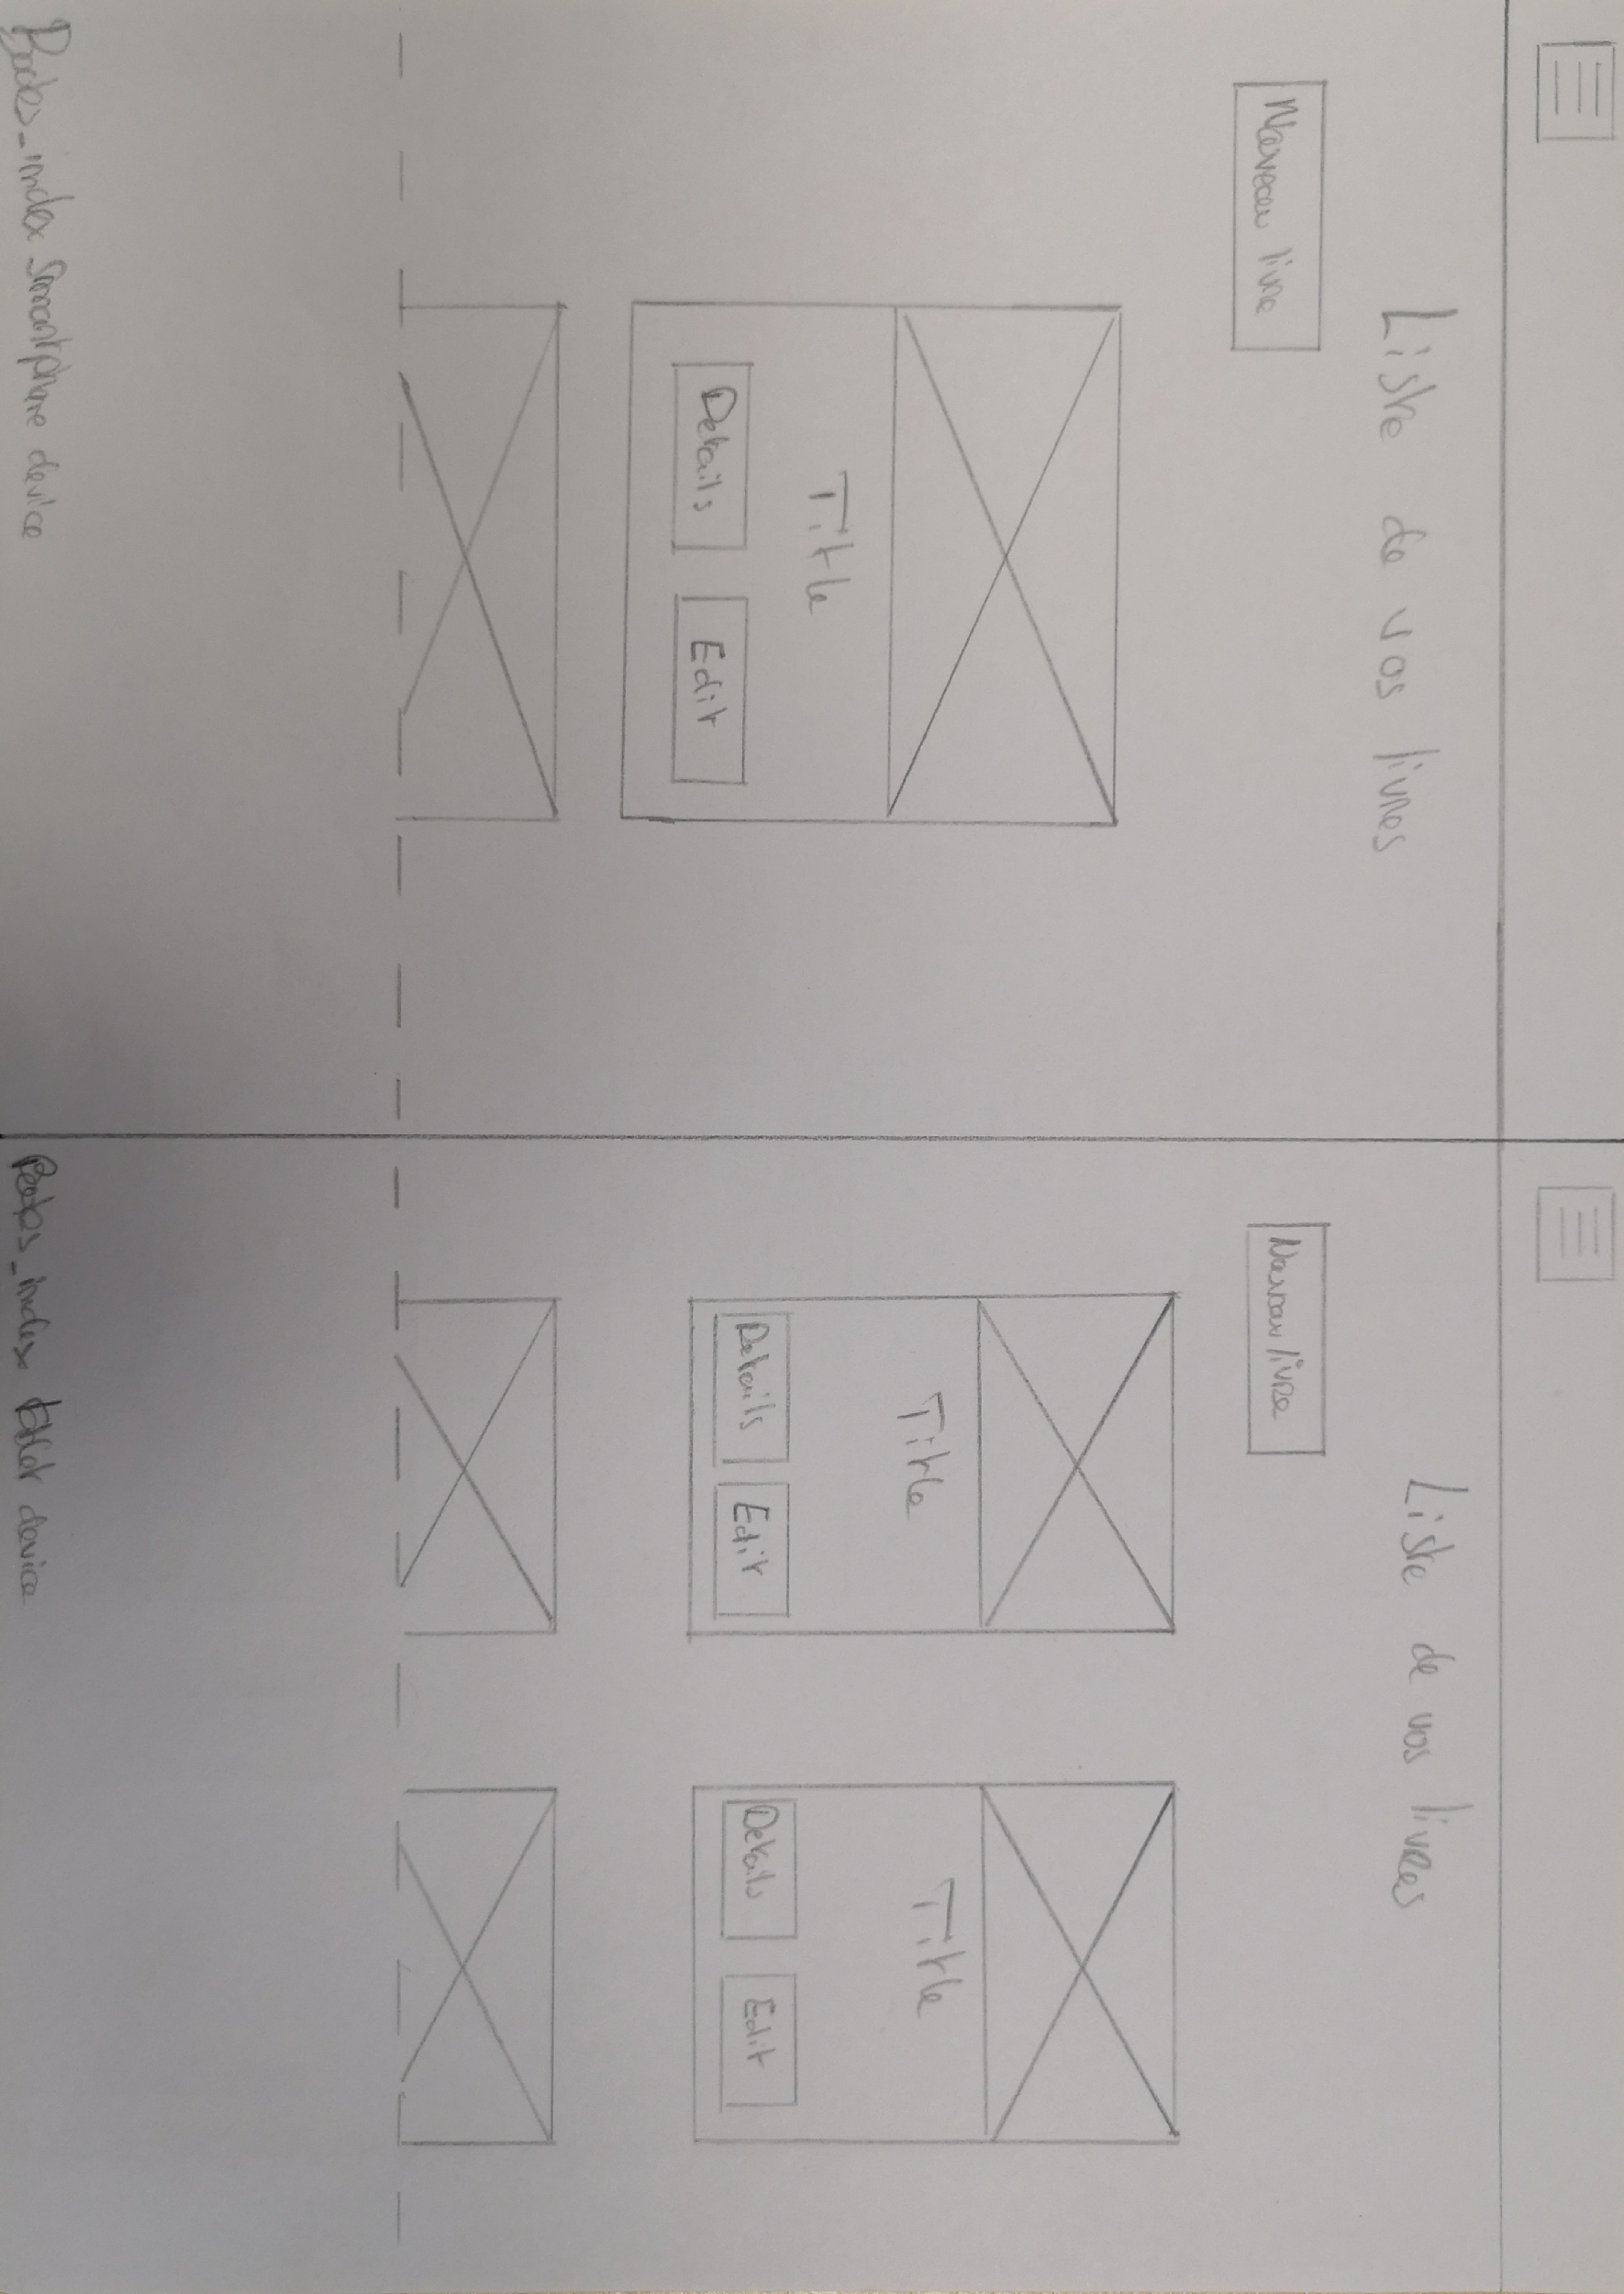 Liste de vos livres
Nouveau livre
Title
Details
Edit
Books_index Smartphone device
Liste de vos livres
Nouveau livre
Title
Details
Edit
Title
Details
Edit
Books_index tablet device